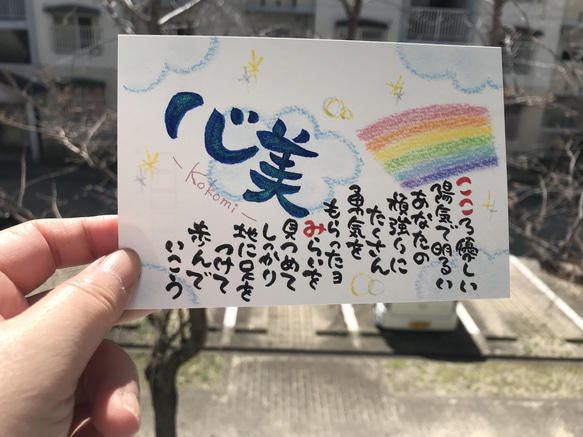 心美
-Kokomi-
こころ優しい
陽気で明るい
あなたの
頑張りに
たくさん
勇気を
もらったヨ
みらいを
見つめて
しっかり
地に足を
つけて
歩んで
いこう